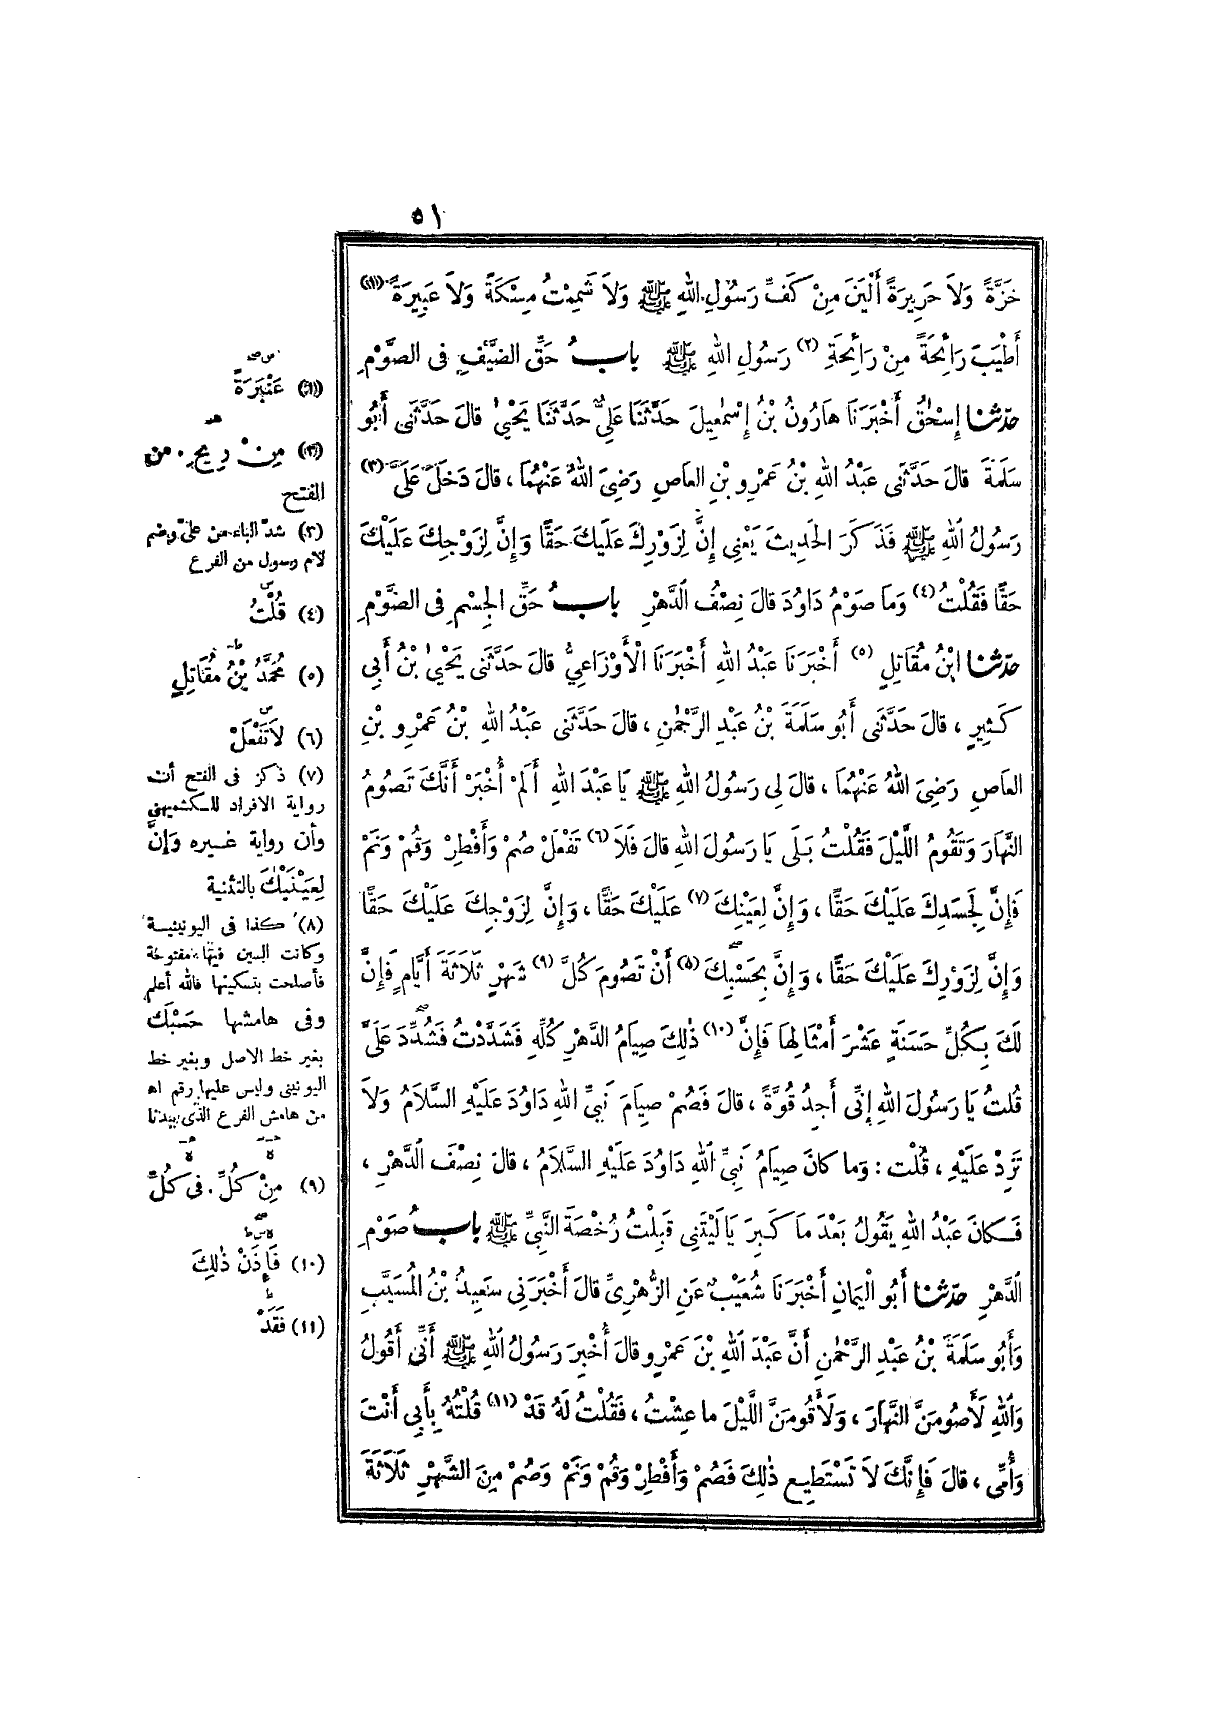 ٥١
خَزَّةً وَلاَ حَرِيرَةً أَلْيَنَ مِنْ كَفِّ رَسُولِ اللهِ ﷺ وَلاَ شَمِمْتُ مِسْكَةً وَلاَ عَبِيرَةً (١)
أَطْيَبَ رَائِحَةً مِنْ رَائِحَةِ (٢) رَسُولِ اللهِ ﷺ بابُ حَقِّ الضَّيْفِ فِى الصَّوْمِ
حدّثنا إِسْحٰقُ أَخْبَرَنَا هَارُونُ بْنُ إِسْمٰعِيلَ حَدَّثَنَا عَلِيٌّ حَدَّثَنَا يَحْيىٰ قالَ حَدَّثَنِى أَبُو
سَلَمَةَ قالَ حَدَّثَنِى عَبْدُ اللهِ بْنُ عَمْرِو بْنِ العَاصِ رَضِىَ اللهُ عَنْهُمَا ، قالَ دَخَلَ عَلَىَّ (٣)
رَسُولُ اللهِ ﷺ فَذَكَرَ الحَدِيثَ يَعْنِى إِنَّ لِزَوْرِكَ عَلَيْكَ حَقًّا وَإِنَّ لِزَوْجِكَ عَلَيْكَ
حَقًّا فَقُلْتُ (٤) وَمَا صَوْمُ دَاوُدَ قالَ نِصْفُ الدَّهْرِ بابُ حَقِّ الْجِسْمِ فِى الصَّوْمِ
حدّثنا ابْنُ مُقَاتِلٍ (٥) أَخْبَرَنَا عَبْدُ اللهِ أَخْبَرَنَا الْأَوْزَاعِىُّ قالَ حَدَّثَنِى يَحْيىٰ بْنُ أَبِى
كَثِيرٍ ، قالَ حَدَّثَنِى أَبُو سَلَمَةَ بْنُ عَبْدِ الرَّحْمٰنِ ، قالَ حَدَّثَنِى عَبْدُ اللهِ بْنُ عَمْرِو بْنِ
العَاصِ رَضِىَ اللهُ عَنْهُمَا ، قالَ لِى رَسُولُ اللهِ ﷺ يَا عَبْدَ اللهِ أَلَمْ أُخْبَرْ أَنَّكَ تَصُومُ
النَّهَارَ وَتَقُومُ اللَّيْلَ فَقُلْتُ بَلَى يَا رَسُولَ اللهِ قالَ فَلَا (٦) تَفْعَلْ صُمْ وَأَفْطِرْ وَقُمْ وَنَمْ
فَإِنَّ لِجَسَدِكَ عَلَيْكَ حَقًّا ، وَإِنَّ لِعَيْنِكَ (٧) عَلَيْكَ حَقًّا ، وَإِنَّ لِزَوْجِكَ عَلَيْكَ حَقًّا
وَإِنَّ لِزَوْرِكَ عَلَيْكَ حَقًّا ، وَإِنَّ بِحَسْبِكَ (٨) أَنْ تَصُومَ كُلَّ (٩) شَهْرٍ ثَلَاثَةَ أَيَّامٍ فَإِنَّ
لَكَ بِكُلِّ حَسَنَةٍ عَشْرَ أَمْثَالِهَا فَإِنَّ (١٠) ذٰلِكَ صِيَامُ الدَّهْرِ كُلِّهِ فَشَدَّدْتُ فَشُدِّدَ عَلَىَّ
قُلتُ يَا رَسُولَ اللهِ إِنِّى أَجِدُ قُوَّةً ، قالَ فَصُمْ صِيَامَ نَبِىِّ اللهِ دَاوُدَ عَلَيْهِ السَّلاَمُ وَلاَ
تَزِدْ عَلَيْهِ ، قُلْت : وَما كانَ صِيَامُ نَبِىِّ اللهِ دَاوُدَ عَلَيْهِ السَّلاَمُ ، قالَ نِصْفَ الدَّهْرِ ،
فَكانَ عَبْدُ اللهِ يَقُولُ بَعْدَ مَا كَبِرَ يَالَيْتَنِى قَبِلْتُ رُخْصَةَ النَّبِىِّ ﷺ بابُ صَوْمِ
الدَّهْرِ حدّثنا أَبُو اليَمَانِ أَخْبَرَنَا شُعَيْبٌ عَنِ الزُّهْرِىِّ قالَ أَخْبَرَنِى سَعِيدُ بْنُ المُسَيَّبِ
وَأَبُو سَلَمَةَ بْنُ عَبْدِ الرَّحْمٰنِ أَنَّ عَبْدَ اللهِ بْنَ عَمْرٍو قالَ أُخْبِرَ رَسُولُ اللهِ ﷺ أَنِّى أَقُولُ
وَاللهِ لَأَصُومَنَّ النَّهَارَ ، وَلَأَقُومَنَّ اللَّيْلَ ما عِشْتُ ، فَقُلْتُ لَهُ قَدْ (١١) قُلْتُهُ بِأَبِى أَنْتَ
وَأُمِّى ، قالَ فَإِنَّكَ لاَ تَسْتَطِيعُ ذٰلِكَ فَصُمْ وَأَفْطِرْ وَقُمْ وَنَمْ وَصُمْ مِنَ الشَّهْرِ ثَلَاثَةَ
(١) عَنْبَرَةً
(٢) مِنْ رِيحِ . من
الفتح
(٣) شدّ الياء من علىّ وبضم
لام رسول من الفرع
(٤) قُلْتُ
(٥) مُحَمَّدُ بْنُ مُقَاتِلٍ
(٦) لاَ تَفْعَلْ
(٧) ذكر فى الفتح أن
رواية الافراد للكشميهنى
وأن رواية غيره وَإِنَّ
لِعَيْنَيْكَ بالتثنية
(٨) كذا فى اليونينية
وكانت السين فيها مفتوحة
فأصلحت بتسكينها فالله أعلم
وفى هامشها حَسْبَك
بغير خط الاصل وبغير خط
اليونينى وليس عليها رقم اه
من هامش الفرع الذى بيدنا
(٩) مِنْ كُلِّ . فى كُلِّ
(١٠) فَإِذَنْ ذٰلِكَ
(١١) فَقَدْ